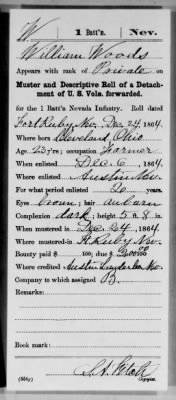 W 1 Batt'n. Nev.
William Woods
Appears with rank of Private on
Muster and Descriptive Roll of a Detachment
of U. S. Vols. forwarded.
for the 1 Batt'n Nevada Infantry. Roll dated
Fort Ruby Nev. Dec 24, 1864.
Where born Cleveland, Ohio
Age 23 y'rs; occupation Farmer
When enlisted Dec. 6, 1864.
Where enlisted Austin Nev.
For what period enlisted years.
Eyes brown; hair auburn
Complexion dark; height 5 ft. 8 in.
When mustered in Dec 24, 1864.
Where mustered in Ft. Ruby Nev.
Bounty paid $ 100; due $ 100
Where credited Austin Lander Co. Nev.
Company to which assigned B.
Remarks:
Book mark:
(886y) Copyist.